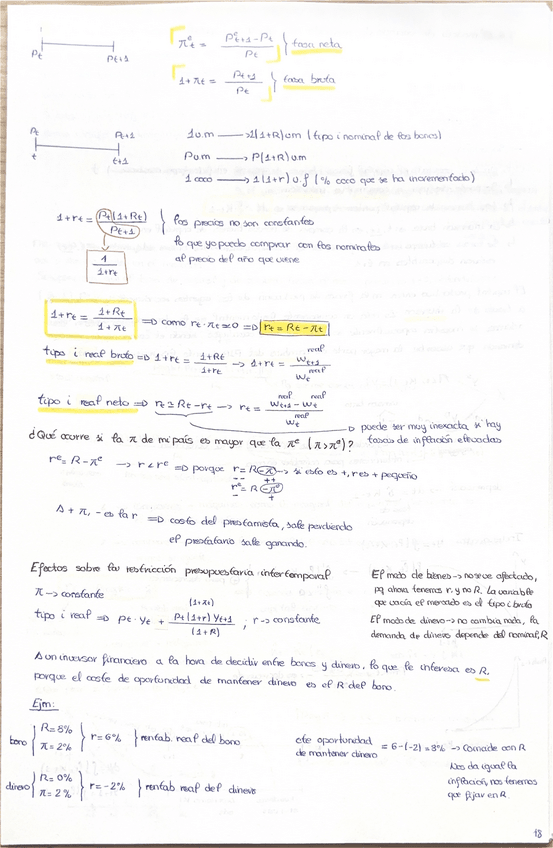 Pt Pt+1
π^e_t = (P^e_t+1 - Pt) / Pt } tasa neta
1+πt = Pt+1 / Pt } tasa bruta
Pt Pt+1
t t+1
1 u.m → 1(1+R) um (tipo i nominal de los bonos)
P u.m → P(1+R) u.m
1 coco → 1(1+r) u.f (% coco que se ha incrementado)
1+rt = Pt(1+Rt) / Pt+1 } los precios no son constantes
lo que yo puedo comprar con los nominales
al precio del año que viene
1 / 1+rt
1+rt = (1+Rt) / (1+πt) => como rt·πt ≃ 0 => rt = Rt - πt
tipo i real bruto => 1+rt = (1+Rt) / (1+rt) → 1+rt = W^real_t+1 / W^real_t
tipo i real neto => rt ≃ Rt - rt → rt = (W^real_t+1 - W^real_t) / W^real_t
puede ser muy inexacta si hay
tasas de inflación elevadas
¿Qué ocurre si la π de mi país es mayor que la π^e (π>π^e)?
r^e = R - π^e → r < r^e => porque r = R(-π) → si esto es +, r es + pequeño
r^e = R(-π^e)
A + π, - es la r => costo del prestamista, sale perdiendo
el prestatario sale ganando.
Efectos sobre la restricción presupuestaria intertemporal
π → constante
tipo i real => Pt·Yt + Pt(1+r) Yt+1 (1+π) / (1+R) ; r → constante
El mdo de bienes → no se ve afectado,
pq ahora tenemos r, y no R. La variable
que vacía el mercado es el tipo i bruto
El mdo de dinero → no cambia nada, la
demanda de dinero depende del nominal, R
A un inversor financiero a la hora de decidir entre bonos y dinero, lo que le interesa es R,
porque el coste de oportunidad de mantener dinero es el R del bono.
Ejm:
bono { R = 8% π = 2% } r = 6% } rentab. real del bono
cte oportunidad
de mantener dinero = 6-(-2) = 8% → Coincide con R
Nos da igual la
inflación, nos tenemos
que fijar en R.
dinero { R = 0% π = 2% } r = -2% } rentab real del dinero
18